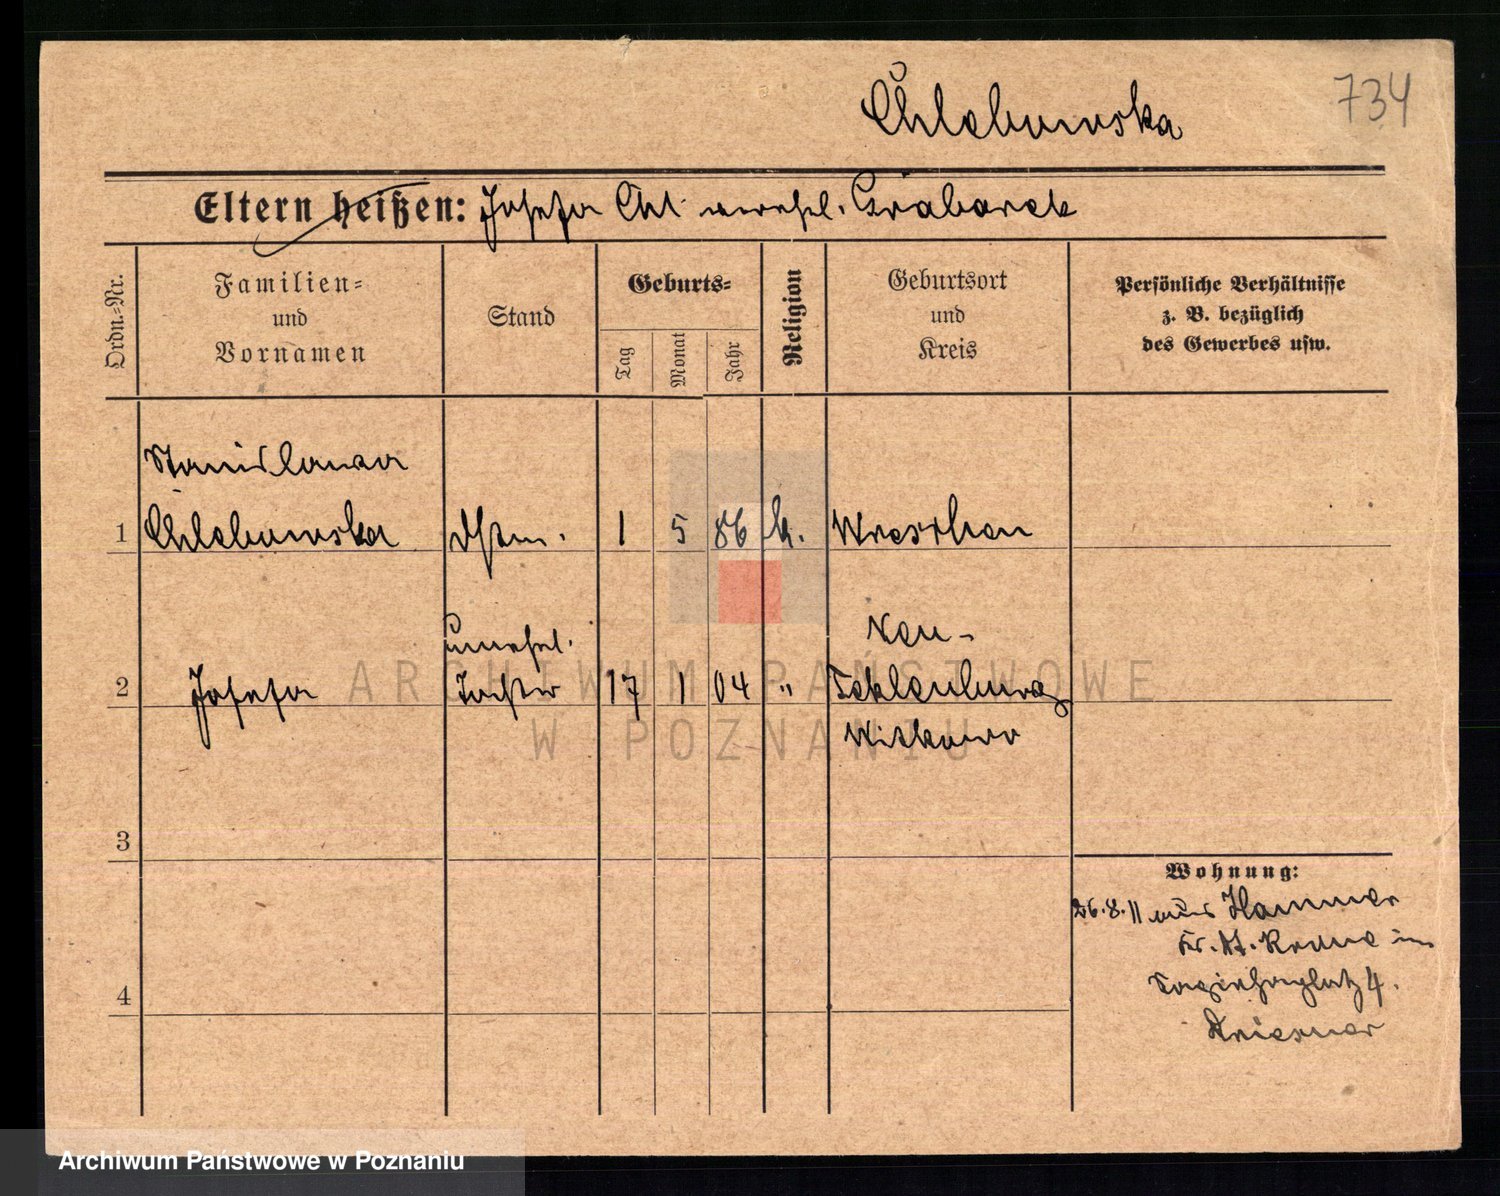 Chlebowska
734
Eltern heißen: Josefa Chl. verehl. Grabarek
Ordn.-Nr.
Familien=
und
Vornamen
Stand
Geburts=
Tag
Monat
Jahr
Religion
Geburtsort
und
Kreis
Persönliche Verhältnisse
z. B. bezüglich
des Gewerbes usw.
Stanislawa
1 Chlebowska 1 5 86 k. Wreschen
unehel.
2 Josefa Tochter 17 1 04 " Neu-
Tecklenburg
Witkowo
3
4
Wohnung:
26.8.11 aus Hammer
Kr. D. Krone in
Sapiehaplatz 4.
ARCHIWUM PAŃSTWOWE
W POZNANIU
Archiwum Państwowe w Poznaniu